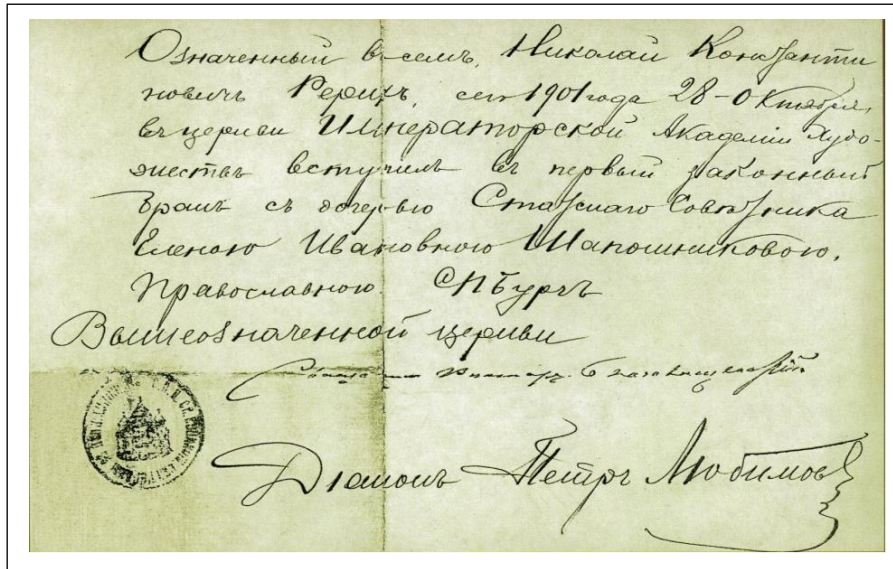 Означенный въ семъ, Николай Константи
новичъ Рерихъ, сего 1901 года 28-октября,
въ церкви Императорской Академіи Худо-
жествъ вступилъ въ первый законный
бракъ съ дочерью Статскаго Совѣтника
Еленою Ивановною Шапошниковою,
Православною. СПБургъ
Вышеозначенной церкви
Священникъ
Діаконъ Петръ Любимовъ